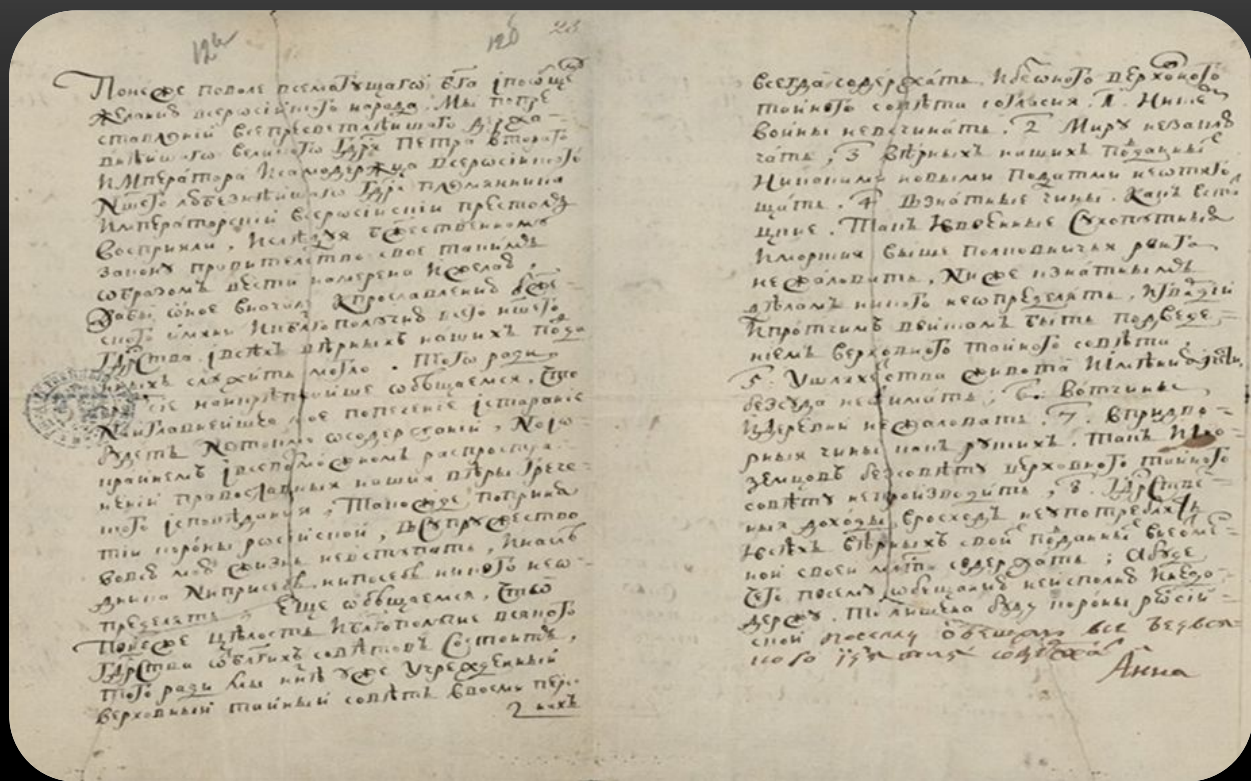 12а
12б 23
Понеже поволе всемогущаго бга і пообще
желанию всеросійского народа. Мы попре
ставлении всепресветлѣишаго держа-
внѣишаго великого гдря Петра втораго
Императора Исамодержца всеросійского
Ншего любезнѣйшаго гдря племянника
Императорскій всеросіискіи престолъ
восприяли. Ислѣдуя бжественному
закону правительство свое такимъ
образомъ вести намерена Ижелаю,
дабы оное вначале кпрославлению бже-
ского имяни Икблагополучию всего ншего
гдрства івсехъ вѣрныхъ нашихъ подда
ныхъ служить могло. Того ради,
наикрѣпчаише обѣщаемся, Что
Наиглавнейшее мое попечение істарание
будетъ Нетокмо осодержании, Но ио
краинемъ івсевозможномъ распростра-
нении православныя нашия вѣры Грече-
ского ісповѣдания, Такожде попринa
тіи короны росіиской, всупружество
вовсю мою жизнь невступать, Инаслѣ
дника Ниприсебѣ нипосебѣ никого нео-
пределять. Еще обѣщаемся, Что
Понеже целость Иблагополучие всякого
Гдрства отблгихъ совѣтовъ Состоитъ,
Того ради мы ннѣ уже Учрежденный
верховный тайный совѣтъ ввосми пер-
сонахъ
всегда содержать, Ибезоного верховного
тайного совѣта согласия. 1. Нискемъ
войны невсчинать. 2 Миру незаклю
чать, 3 вѣрныхъ нашихъ подданныхъ
Никакими новыми податми неотяго
щать. 4 Взнатные чины. Какъ встa
цкие. Такъ Ивоенные Сухопутные
Иморские выше полковничья ранга
нежаловать, Ниже кзнатнымъ
дѣламъ никого неопределять, Игвардіи
Ипротчимъ войскамъ быть подведе-
ниемъ верховного тайного совѣта
5. Ушляхетства живота Иимения
безсуда неотимать, 6. Вотчины
Идеревни нежаловать. 7. Впридво-
рныя чины какъ рускихъ. такъ Ино-
земцовъ безсовѣту верховного тайного
совѣту непроизводить, 8. Гдрстве-
ныя доходы вросходъ неупотреблять
Ивсѣхъ вѣрныхъ свой подданныхъ
ной своей млсти содержать; Абуде
чего посему обещанию неисполню Инедо-
держу. То лишена буду короны росіи-
ской посему обещаю все безвся-
кого
Анна